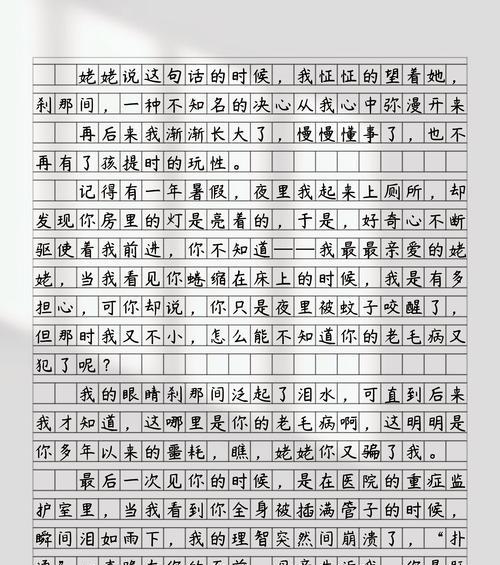 姥姥说这句话的时候，我怔怔的望着她，
刹那间，一种不知名的决心从我心中弥漫开来
再后来我渐渐长大了，慢慢懂事了，也不
再有了孩提时的玩性。
记得有一年暑假，夜里我起来上厕所，却
发现你房里的灯是亮着的，于是，好奇心不断
驱使着我前进，你不知道——我最最亲爱的姥
姥，当我看见你蜷缩在床上的时候，我是有多
担心，可你却说，你只是夜里被蚊子咬醒了，
但那时我又不小，怎么能不知道你的老毛病又
犯了呢？
我的眼睛刹那间泛起了泪水，可直到后来
我才知道，这哪里是你的老毛病啊，这明明是
你多年以来的噩耗，瞧，姥姥你又骗了我。
最后一次见你的时候，是在医院的重症监
护室里，当我看到你全身被插满管子的时候，
瞬间泪如雨下，我的理智突然间崩溃了，“扑